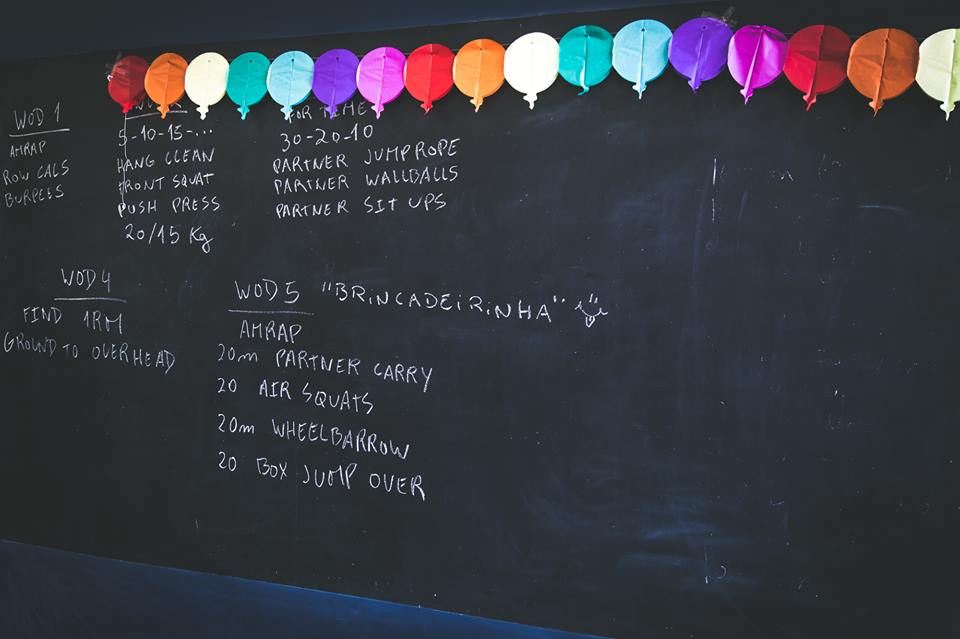 WOD 1
AMRAP
ROW CALS
BURPEES
5-10-15-...
HANG CLEAN
FRONT SQUAT
PUSH PRESS
20/15 Kg
FOR TIME
30-20-10
PARTNER JUMP ROPE
PARTNER WALLBALLS
PARTNER SIT UPS
WOD 4
FIND 1RM
GROUND TO OVERHEAD
WOD 5 "BRINCADEIRINHA"
AMRAP
20m PARTNER CARRY
20 AIR SQUATS
20m WHEELBARROW
20 BOX JUMP OVER